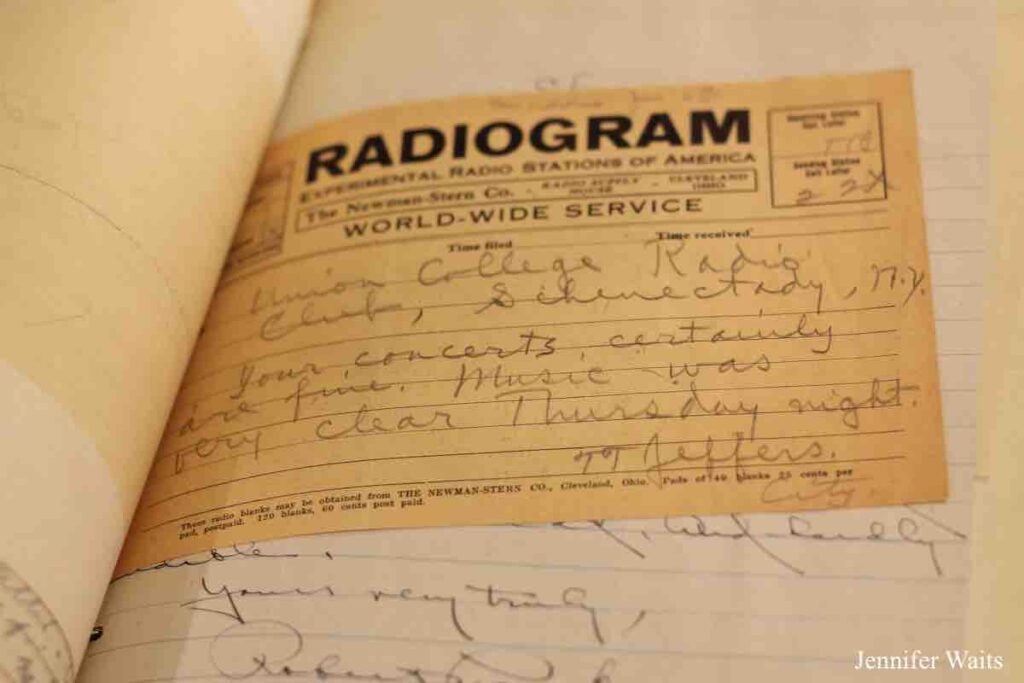 RADIOGRAM
EXPERIMENTAL RADIO STATIONS OF AMERICA
The Newman-Stern Co. - RADIO SUPPLY HOUSE - CLEVELAND OHIO
WORLD-WIDE SERVICE
Receiving Station
Call Letter
Sending Station
Call Letter
2 2X
Time filed Time received
Union College Radio
Club, Schenectady, N.Y.
Your concerts certainly
are fine. Music was
very clear Thursday night.
Jeffers.
City.
These radio blanks may be obtained from THE NEWMAN-STERN CO., Cleveland, Ohio. Pads of 40 blanks 25 cents per
pad, postpaid. 120 blanks, 60 cents post paid.
loudly
Yours very truly,
Jennifer Waits